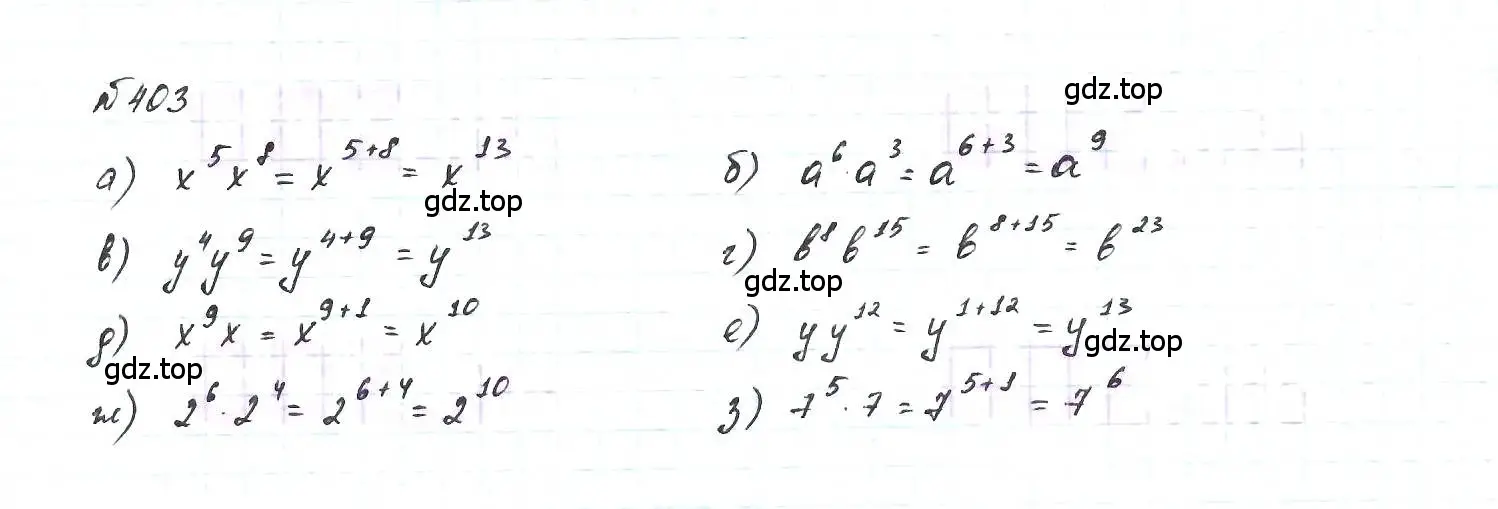 №403
gdz.top
а) x⁵x⁸ = x⁵⁺⁸ = x¹³
б) a⁶·a³ = a⁶⁺³ = a⁹
gdz.top
в) y⁴y⁹ = y⁴⁺⁹ = y¹³
г) b⁸b¹⁵ = b⁸⁺¹⁵ = b²³
gdz.top
д) x⁹x = x⁹⁺¹ = x¹⁰
е) yy¹² = y¹⁺¹² = y¹³
gdz.top
gdz.top
ж) 2⁶·2⁴ = 2⁶⁺⁴ = 2¹⁰
з) 7⁵·7 = 7⁵⁺¹ = 7⁶